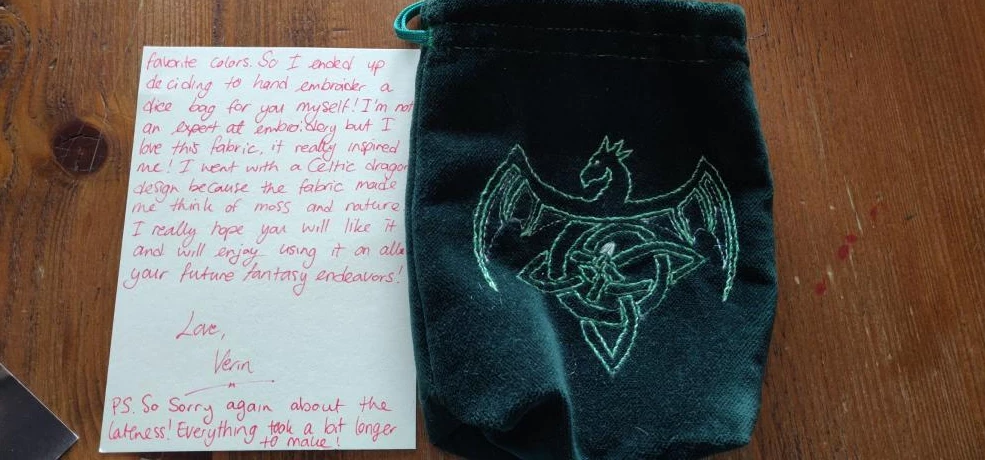 favorite colors. So I ended up
deciding to hand embroider a
dice bag for you myself! I'm not
an expert at embroidery but I
love this fabric, it really inspired
me! I went with a Celtic dragon
design because the fabric made
me think of moss and nature
I really hope you will like it
and will enjoy using it on all
your future fantasy endeavors!
Love,
Verin
PS. So Sorry again about the
lateness! Everything took a bit longer
to make!